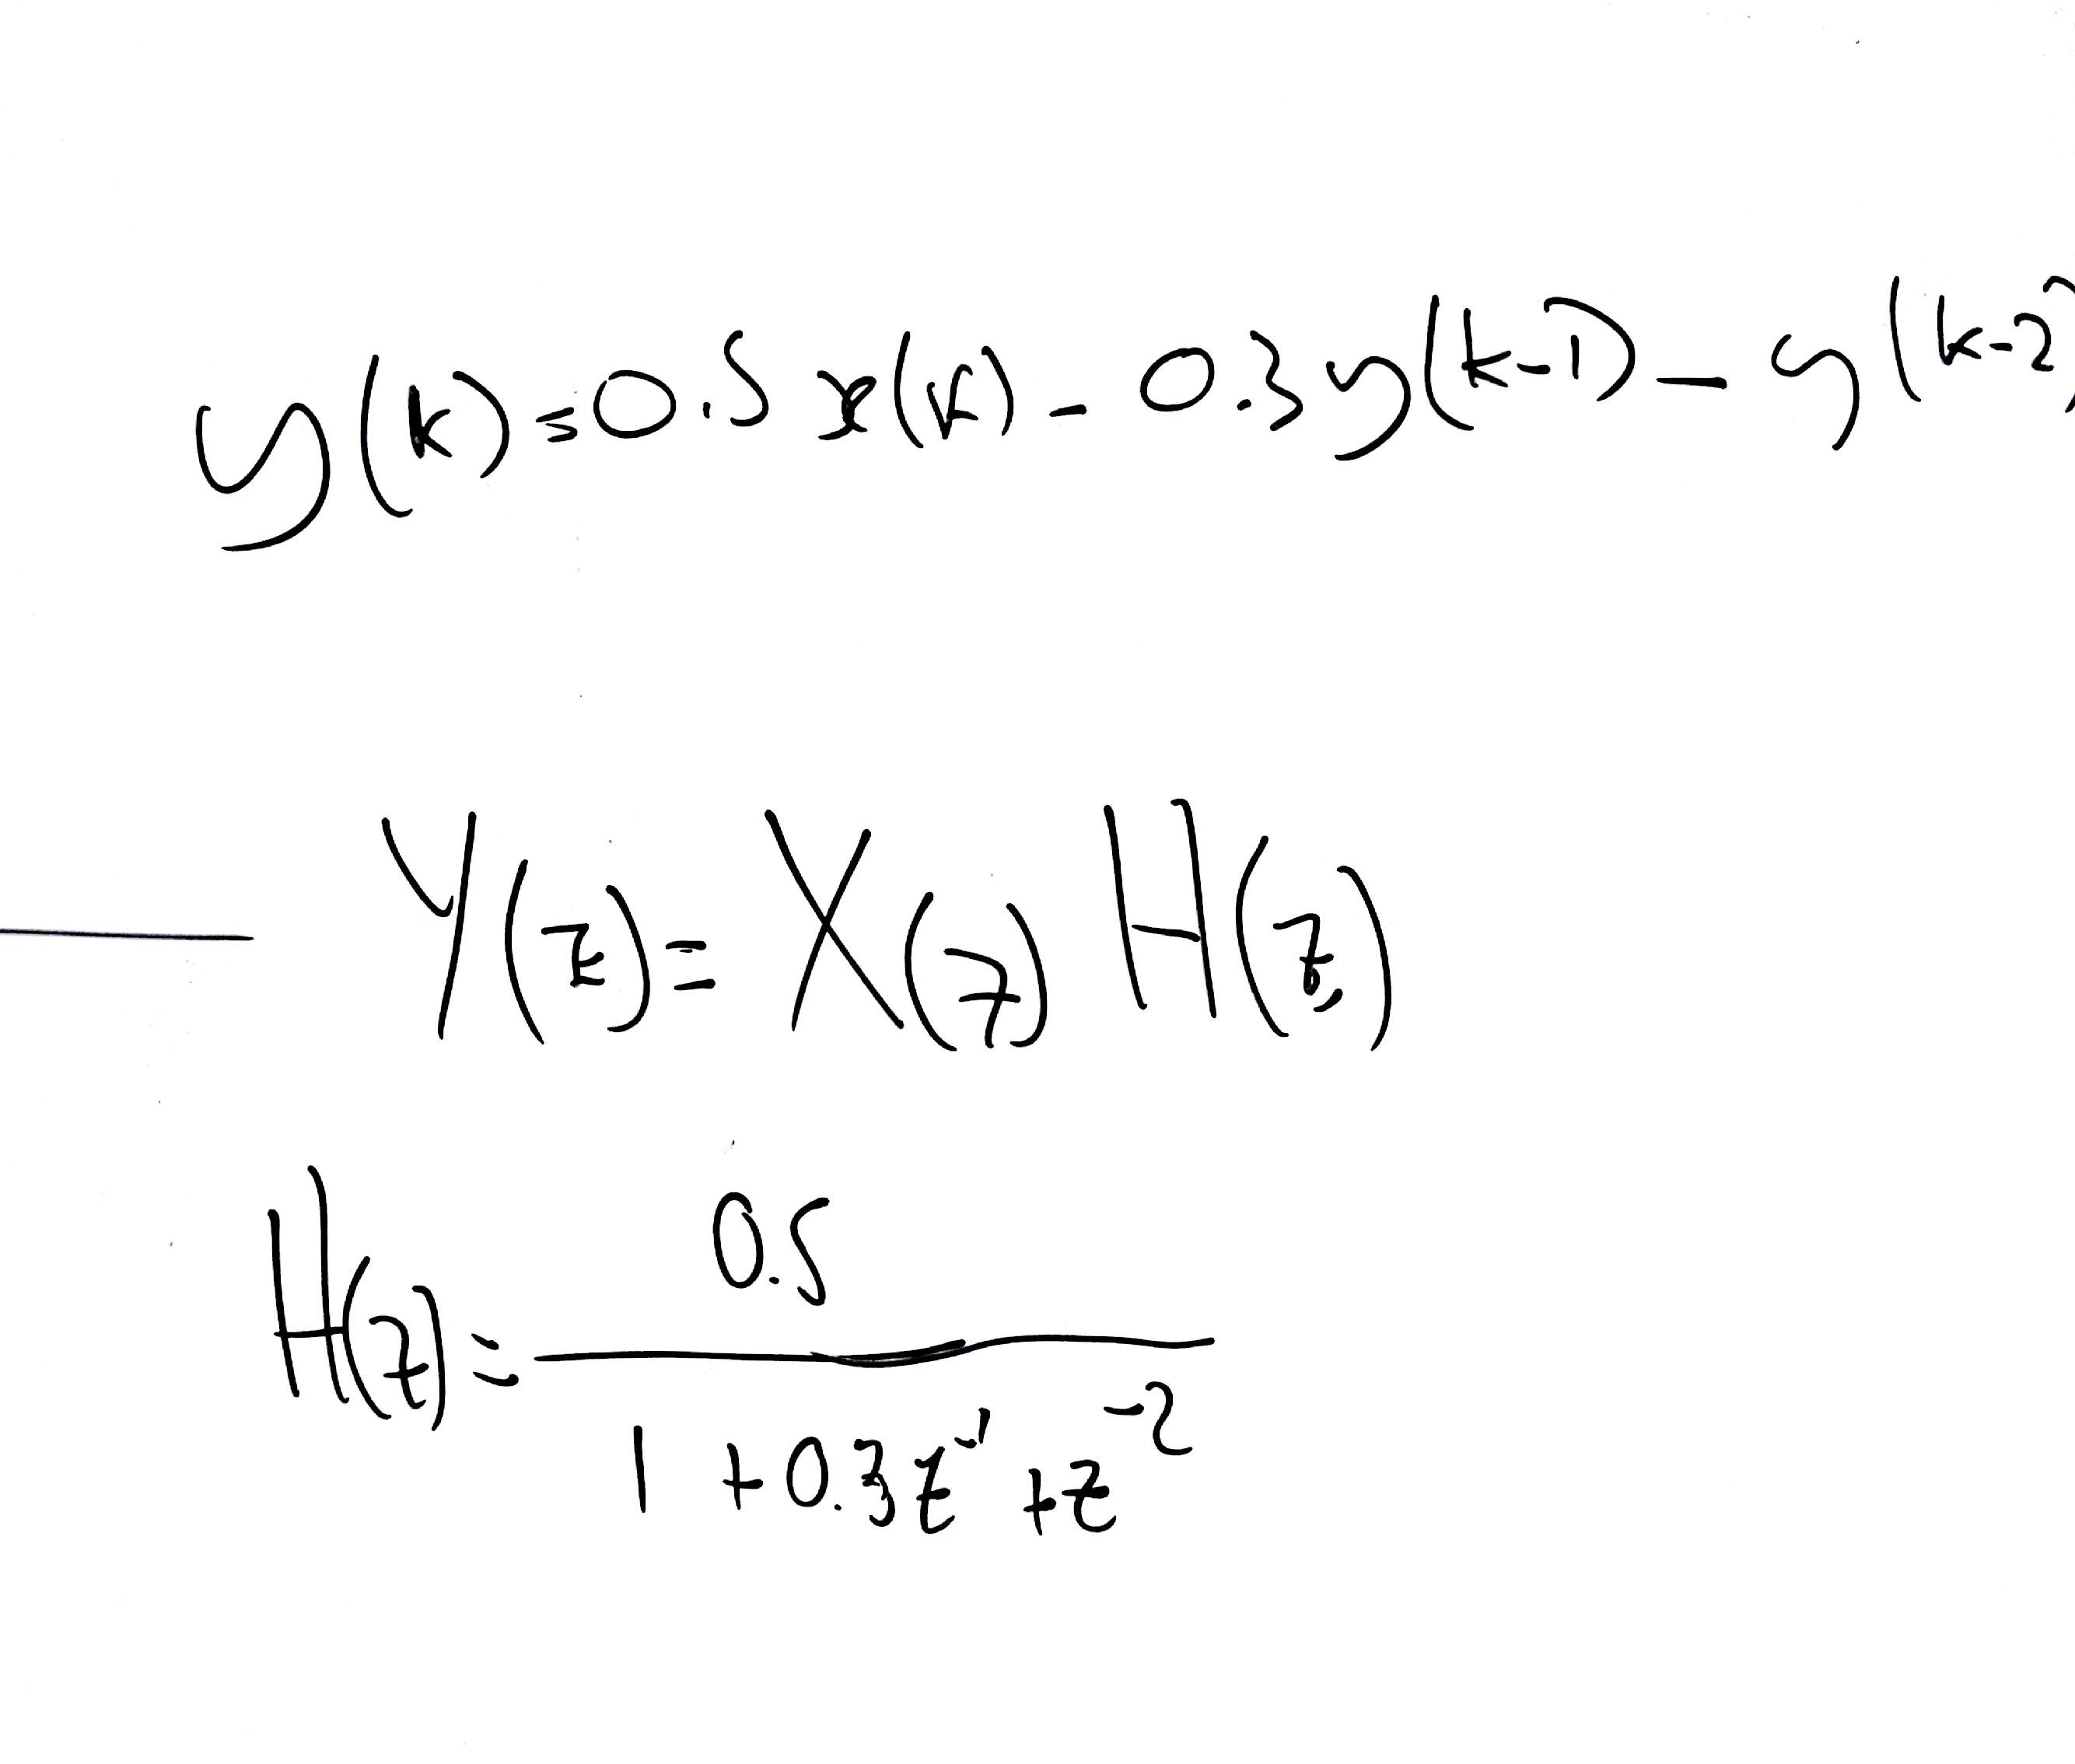 y(k)=0.5 x(k) - 0.3y(k-1) - y(k-2)
Y(z)= X(z) H(z)
H(z)= 0.5
1 +0.3z^-1 +z^-2